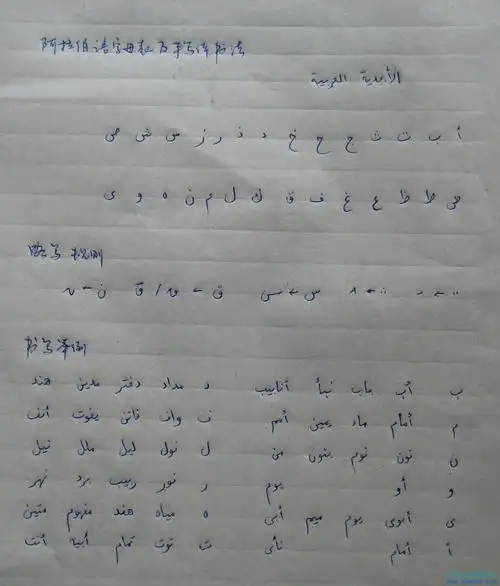 阿拉伯语字母表及手写体书法
الأبجدية العربية
أ ب ت ث ج ح خ د ذ ر ز س ش ص
ض ط ظ ع غ ف ق ك ل م ن ه و ى
略写规则
书写举例
ب أب باب نبأ أنابيب د مداد دفتر مدين هند
م أمام ماد يمين أمم ف واف فاتن يفوت أنف
ن نون نوم ينون من ل نول ليل ملل نيل
و أو يوم ر نور ربيب برد نهر
ى أبوى يوم ميم أبى ه مياه هند مفهوم متين
أ أمام نأى ت توت تمام أبية أنت